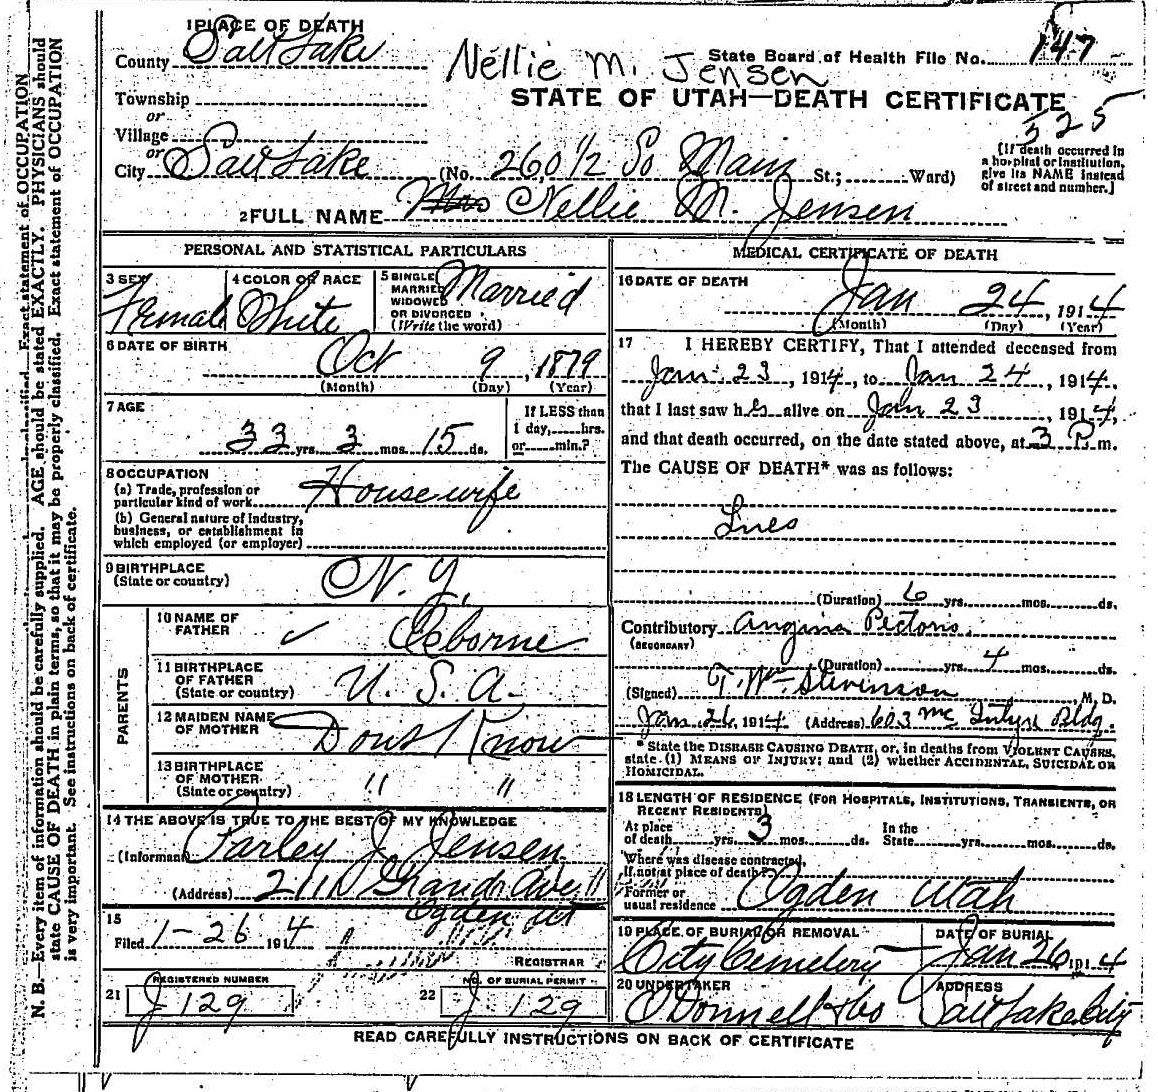 1 PLACE OF DEATH
County Salt Lake
Nellie M. Jensen
State Board of Health File No. 147
Township
or
Village
or
City Salt Lake
STATE OF UTAH—DEATH CERTIFICATE
525
(No. 260 1/2 So Main St.; Ward)
[If death occurred in
a hospital or institution,
give its NAME instead
of street and number.]
2 FULL NAME Mrs Nellie M. Jensen
PERSONAL AND STATISTICAL PARTICULARS
3 SEX
Female
4 COLOR OR RACE
White
5 SINGLE
MARRIED
WIDOWED
OR DIVORCED
(Write the word)
Married
6 DATE OF BIRTH
Oct 9, 1879
(Month) (Day) (Year)
7 AGE
33 yrs. 3 mos. 15 ds.
If LESS than
1 day, hrs.
or min.?
8 OCCUPATION
(a) Trade, profession or
particular kind of work Housewife
(b) General nature of industry,
business, or establishment in
which employed (or employer)
9 BIRTHPLACE
(State or country)
N. Y.
PARENTS
10 NAME OF
FATHER
✓ Osborne
11 BIRTHPLACE
OF FATHER
(State or country)
U. S. A.
12 MAIDEN NAME
OF MOTHER
Dont Know
13 BIRTHPLACE
OF MOTHER
(State or country)
" "
14 THE ABOVE IS TRUE TO THE BEST OF MY KNOWLEDGE
(Informant) Parley J. Jensen
(Address) Grand Ave
Ogden Ut
15
Filed 1-26 1914
REGISTRAR
REGISTERED NUMBER
21 J 129
NO. OF BURIAL PERMIT
22 J 129
MEDICAL CERTIFICATE OF DEATH
16 DATE OF DEATH
Jan 24, 1914
(Month) (Day) (Year)
17 I HEREBY CERTIFY, That I attended deceased from
Jan. 23, 1914, to Jan 24, 1914,
that I last saw her alive on Jan 23, 1914,
and that death occurred, on the date stated above, at 3 P. m.
The CAUSE OF DEATH* was as follows:
Lues
(Duration) 6 yrs. mos. ds.
Contributory Angina Pectoris.
(SECONDARY)
(Duration) yrs. 4 mos. ds.
(Signed) T. Wm Stevenson, M. D.
Jan. 26, 1914 (Address) 603 McIntyre Bldg.
* State the DISEASE CAUSING DEATH, or, in deaths from VIOLENT CAUSES,
state (1) MEANS OF INJURY; and (2) whether ACCIDENTAL, SUICIDAL OR
HOMICIDAL.
18 LENGTH OF RESIDENCE (FOR HOSPITALS, INSTITUTIONS, TRANSIENTS, OR
RECENT RESIDENTS)
At place
of death yrs. 3 mos. ds.
In the
State yrs. mos. ds.
Where was disease contracted,
If not at place of death?
Former or
usual residence Ogden Utah
19 PLACE OF BURIAL OR REMOVAL
City Cemetery
DATE OF BURIAL
Jan 26 1914
20 UNDERTAKER
O'Donnell & Co
ADDRESS
Salt Lake City
READ CAREFULLY INSTRUCTIONS ON BACK OF CERTIFICATE
N. B.—Every item of information should be carefully supplied. AGE should be stated EXACTLY. PHYSICIANS should
state CAUSE OF DEATH in plain terms, so that it may be properly classified. Exact statement of OCCUPATION
is very important. See instructions on back of certificate.